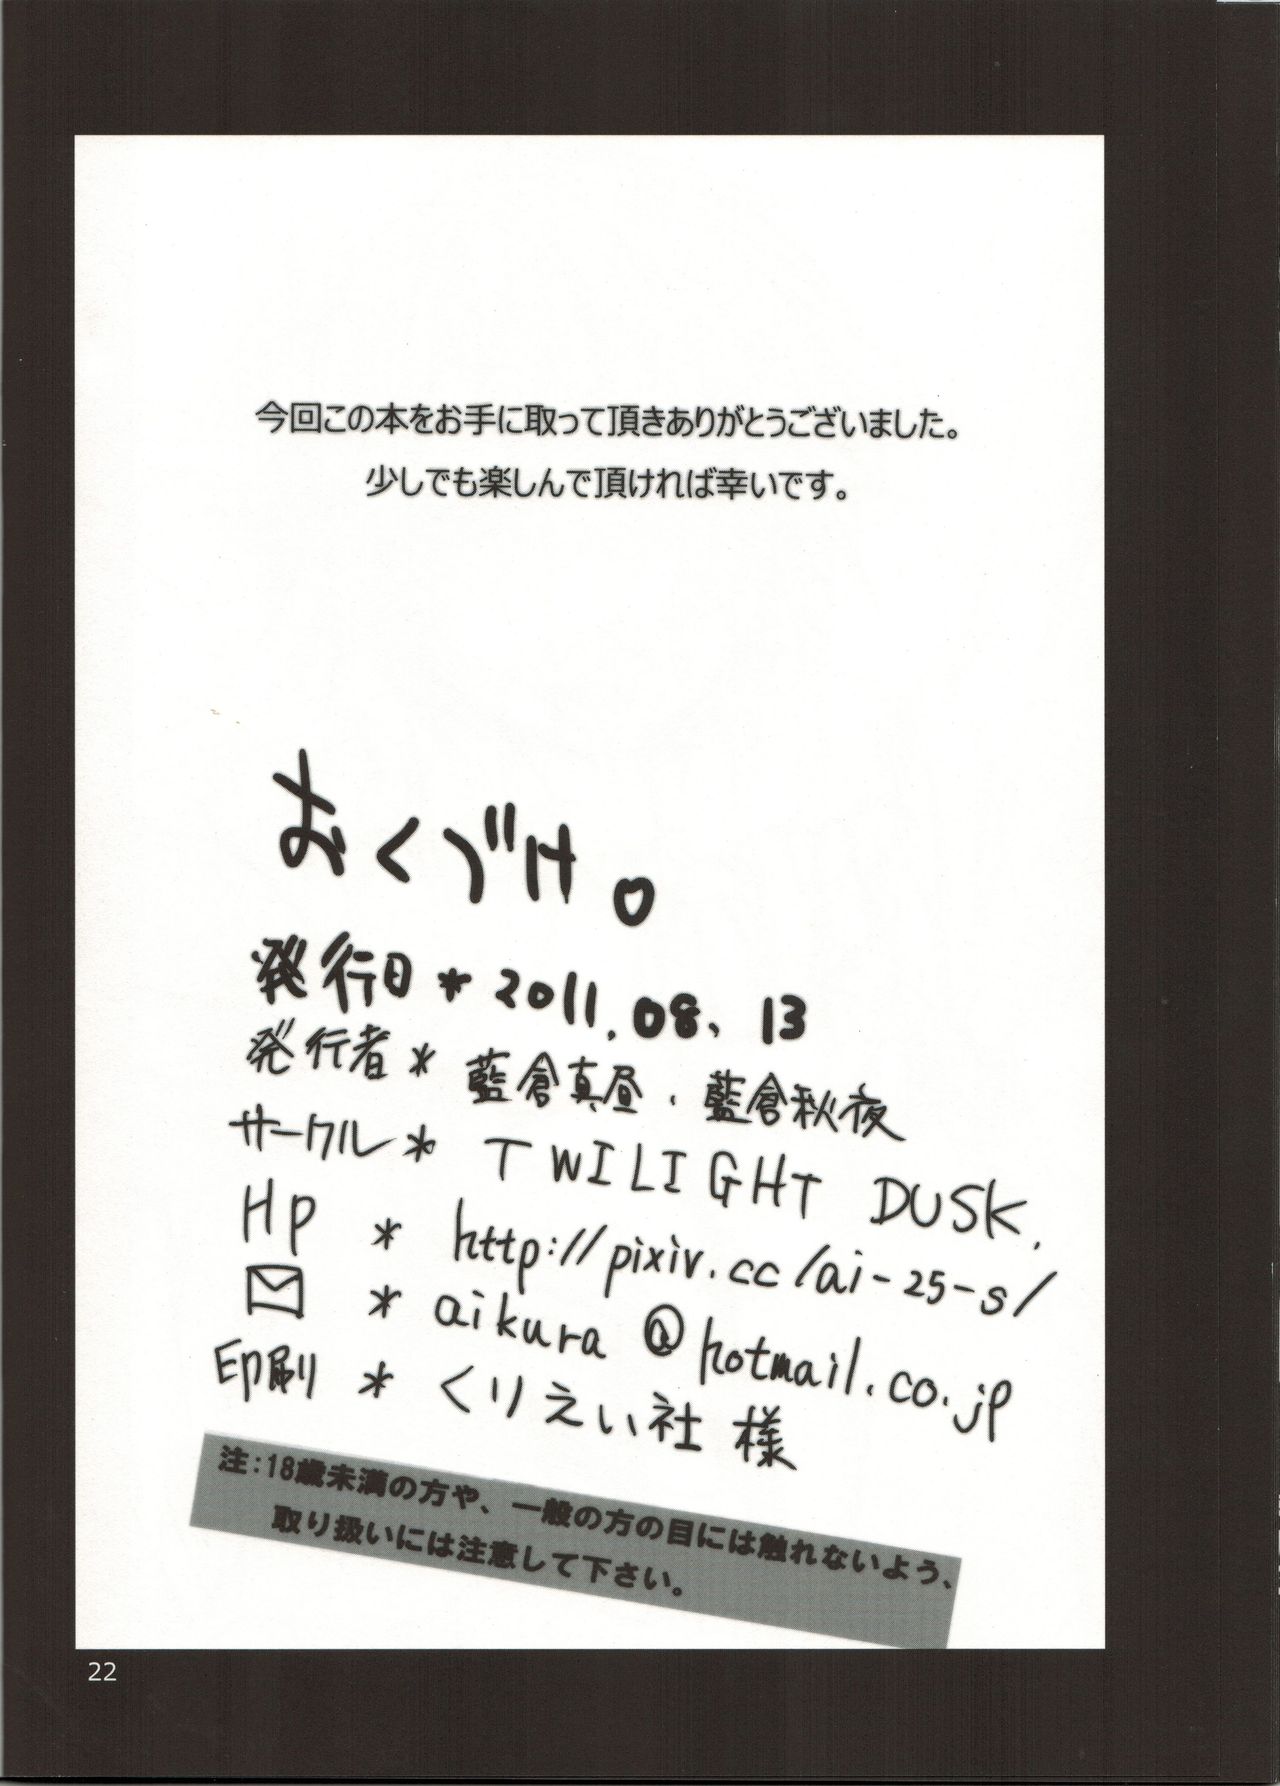 今回この本をお手に取って頂きありがとうございました。
少しでも楽しんで頂ければ幸いです。
おくづけ。
発行日 * 2011.08.13
発行者 * 藍倉真昼・藍倉秋夜
サークル * TWILIGHT DUSK.
Hp * http://pixiv.cc/ai-25-s/
* aikura@hotmail.co.jp
印刷 * くりえい社 様
注:18歳未満の方や、一般の方の目には触れないよう、
取り扱いには注意して下さい。
22